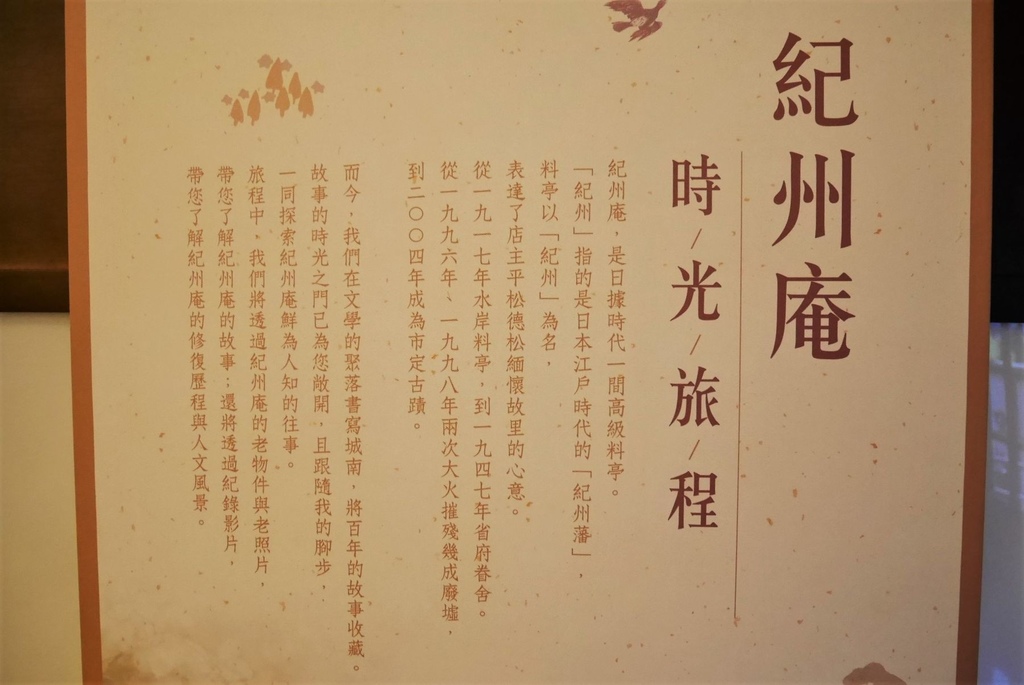 紀州庵
時/光/旅/程
紀州庵，是日據時代一間高級料亭。
「紀州」指的是日本江戶時代的「紀州藩」，
料亭以「紀州」為名，
表達了店主平松德松緬懷故里的心意。
從一九一七年水岸料亭，到一九四七年省府眷舍。
從一九九六年、一九九八年兩次大火摧殘幾成廢墟，
到二〇〇四年成為市定古蹟。
而今，我們在文學的聚落書寫城南，將百年的故事收藏。
故事的時光之門已為您敞開，且跟隨我的腳步，
一同探索紀州庵鮮為人知的往事。
旅程中，我們將透過紀州庵的老物件與老照片，
帶您了解紀州庵的故事；還將透過紀錄影片，
帶您了解紀州庵的修復歷程與人文風景。